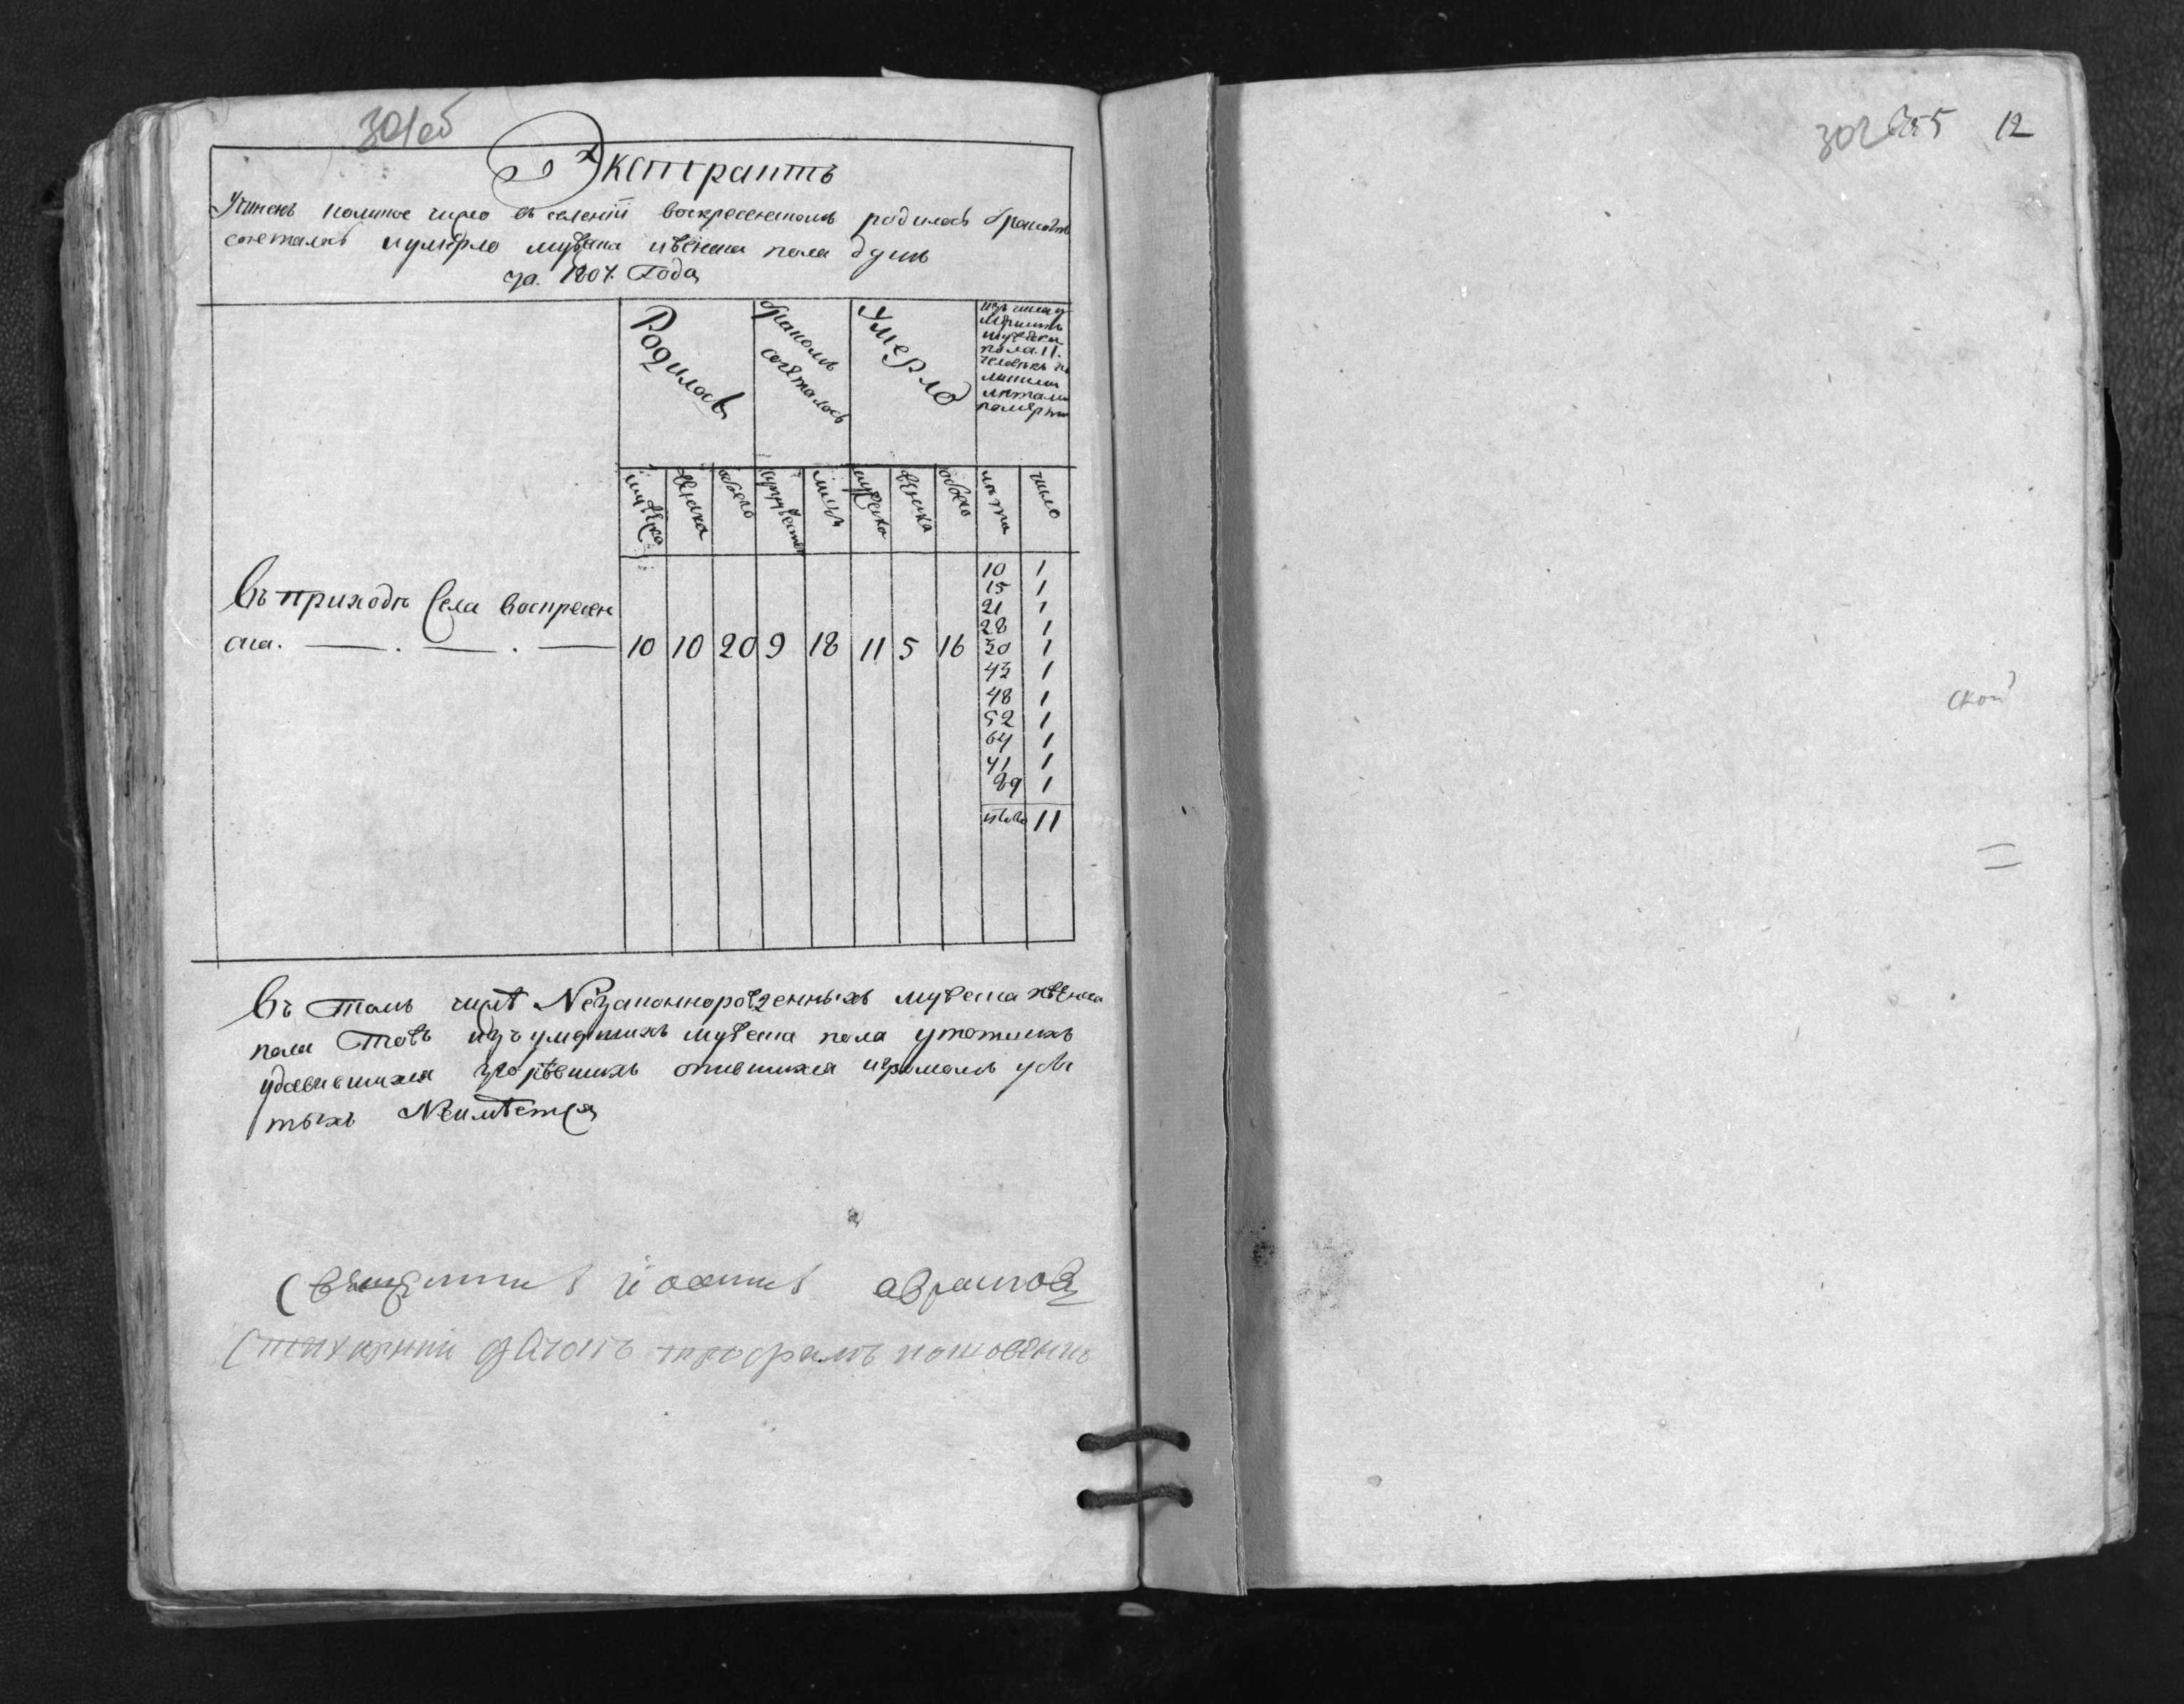 301об
Экстрактъ
коликое число въ селенїи воскресенскомъ родилось бракомъ
сочеталось иумерло мужеска иженска пола душъ
за. 1807. Года
Родилось
бракомъ сочеталось
Умерло
изъ числа у
мершихъ
мужеска
пола. 11.
человѣкъ
летами
мужеска
женска
обоего
супружествъ
лицъ
мужеска
женска
обоего
лѣта
число
Въ приходѣ Села воскресен
ска. — . — . — 10 10 20 9 18 11 5 16
10 1
15 1
21 1
28 1
30 1
43 1
48 1
52 1
64 1
41 1
89 1
итого 11
Въ томъ числѣ Незаконнорожденныхъ мужеска иженска
пола Тожъ изъ умершихъ мужеска пола утопшихъ
удавившихся згорѣвшихъ опившихся игромомъ уби
тыхъ Неимѣется
Священникъ їоаннъ
Стихарный дьячокъ
302 12
ской